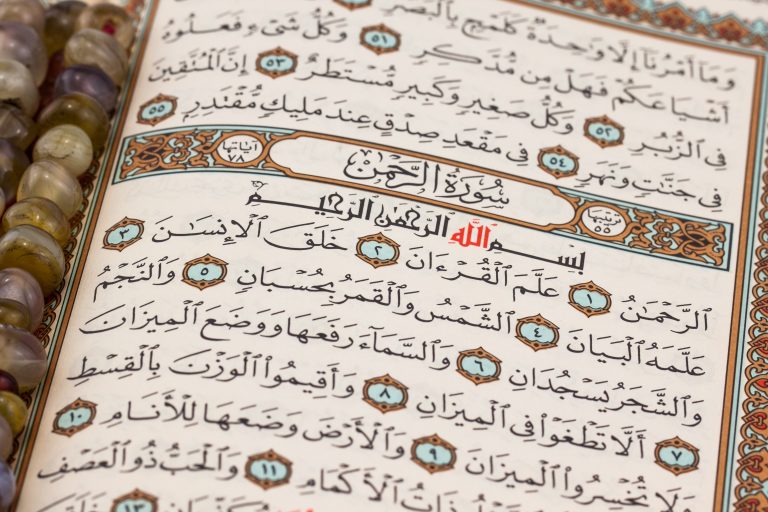 وَمَآ أَمْرُنَآ إِلَّا وَٰحِدَةٌ كَلَمْحٍۭ بِٱلْبَصَرِ
أَشْيَاعَكُمْ فَهَلْ مِن مُّدَّكِرٍ ٥١ وَكُلُّ شَىْءٍ فَعَلُوهُ
فِى ٱلزُّبُرِ ٥٢ وَكُلُّ صَغِيرٍ وَكَبِيرٍ مُّسْتَطَرٌ ٥٣ إِنَّ ٱلْمُتَّقِينَ
فِى جَنَّٰتٍ وَنَهَرٍ ٥٤ فِى مَقْعَدِ صِدْقٍ عِندَ مَلِيكٍ مُّقْتَدِرٍۭ ٥٥
ترتيبها ٥٥ سُورَةُ الرَّحْمٰن آياتها ٧٨
بِسْمِ ٱللَّهِ ٱلرَّحْمَٰنِ ٱلرَّحِيمِ
ٱلرَّحْمَٰنُ ١ عَلَّمَ ٱلْقُرْءَانَ ٢ خَلَقَ ٱلْإِنسَٰنَ ٣
عَلَّمَهُ ٱلْبَيَانَ ٤ ٱلشَّمْسُ وَٱلْقَمَرُ بِحُسْبَانٍ ٥ وَٱلنَّجْمُ
وَٱلشَّجَرُ يَسْجُدَانِ ٦ وَٱلسَّمَآءَ رَفَعَهَا وَوَضَعَ ٱلْمِيزَانَ
٧ أَلَّا تَطْغَوْا۟ فِى ٱلْمِيزَانِ ٨ وَأَقِيمُوا۟ ٱلْوَزْنَ بِٱلْقِسْطِ
وَلَا تُخْسِرُوا۟ ٱلْمِيزَانَ ٩ وَٱلْأَرْضَ وَضَعَهَا لِلْأَنَامِ ١٠
ذَاتُ ٱلْأَكْمَامِ ١١ وَٱلْحَبُّ ذُو ٱلْعَصْفِ